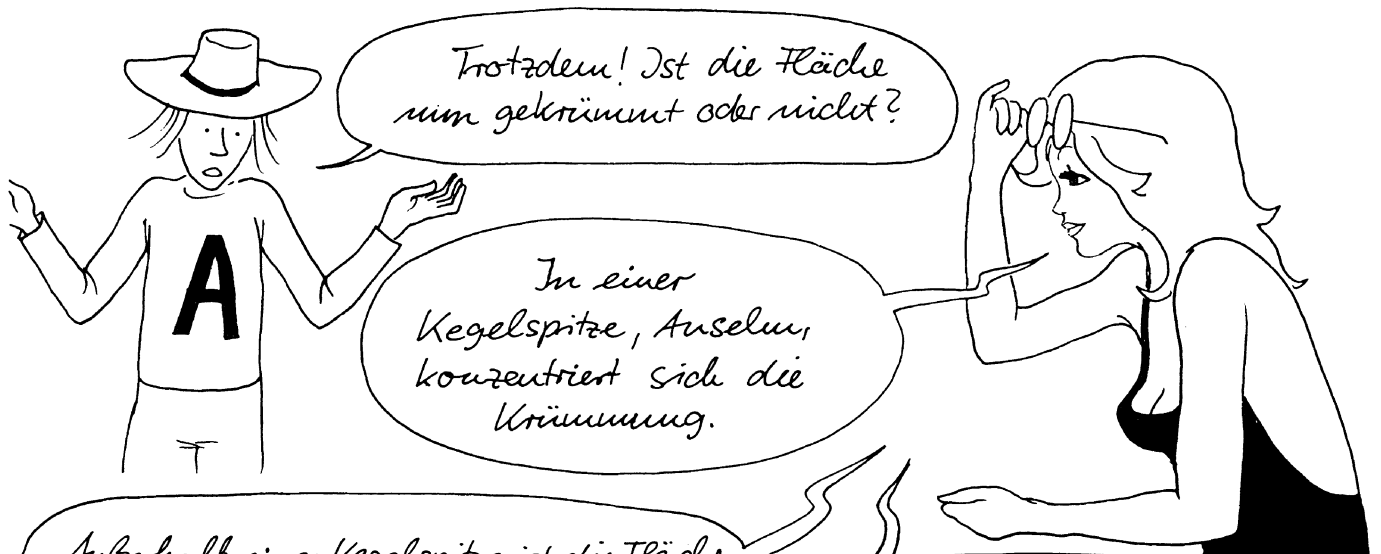 Trotzdem! Ist die Fläche
nun gekrümmt oder nicht?
A
In einer
Kegelspitze, Anselm,
konzentriert sich die
Krümmung.
Außerhalb einer Kegelspitze ist die Fläche